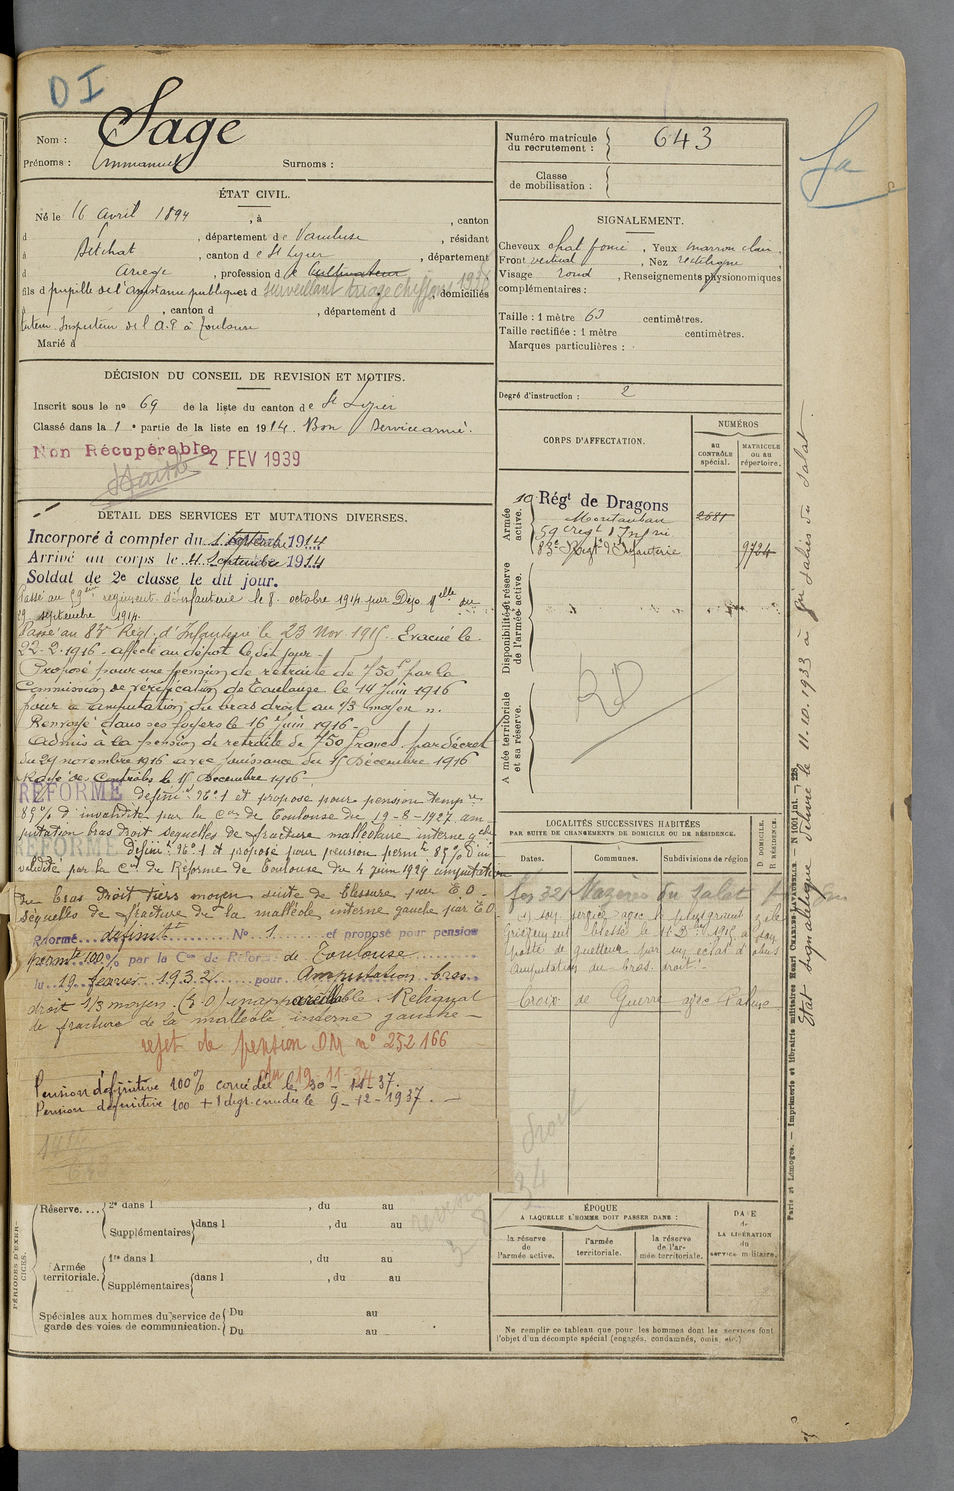 DI
Nom : Sage
Prénoms : Emmanuel Surnoms :
Numéro matricule du recrutement : 643
Classe de mobilisation :
Sa
ÉTAT CIVIL.
Né le 16 avril 1894, à , canton
d , département de Vaucluse, résidant
à Betchat, canton de St Lizier, département
d Ariège, profession de Cultivateur
surveillant triage chiffons 1938
fils d pupille de l'assistance publique et d , domiciliés
à , canton d , département d
tuteur Inspecteur de l'A.P. à Toulouse
Marié à
SIGNALEMENT.
Cheveux chat. foncé, Yeux marron clair,
Front vertical, Nez rectiligne,
Visage rond, Renseignements physionomiques
complémentaires :
Taille : 1 mètre 63 centimètres.
Taille rectifiée : 1 mètre centimètres.
Marques particulières :
Degré d'instruction : 2
DÉCISION DU CONSEIL DE REVISION ET MOTIFS.
Inscrit sous le nº 69 de la liste du canton de St Lizier
Classé dans la 1e partie de la liste en 1914. Bon Service armé.
Non Récupérable
2 FEV 1939
DÉTAIL DES SERVICES ET MUTATIONS DIVERSES.
Incorporé à compter du 1 Septembre 1914
Arrivé au corps le 4 Septembre 1914
Soldat de 2e classe le dit jour.
Passé au 59ème régiment d'Infanterie le 8 octobre 1914 par Déco Melle du
29 septembre 1914.
Passé au 83e Régt d'Infanterie le 23 Nov. 1915. Evacué le
22-2-1916 - affecté au dépôt le dit jour.
Proposé pour une pension de retraite de 750f par la
Commission de vérification de Toulouse le 14 Juin 1916
pour « amputation du bras droit au 1/3 moyen ».
Renvoyé dans ses foyers le 16 Juin 1916 -
Admis à la pension de retraite de 750 francs par décret
du 27 novembre 1916 avec jouissance du 15 Décembre 1916
Rayé des Contrôles le 15 Décembre 1916
RÉFORMÉ définif Nº 1 et proposé pour pension tempre
85% d'invalidité par la Con de Toulouse du 19-8-1927. am-
putation bras droit séquelles de fracture malléolaire interne gche
RÉFORMÉ définif Nº 1 et proposé pour pension permte 85% d'in
validité par la Con de Réforme de Toulouse du 4 juin 1929 amputation
du bras droit tiers moyen suite de blessure par E.O -
séquelles de fracture de la malléole interne gauche par E.O.
Réformé définitt Nº 1 et proposé pour pension
permte 100% par la Con de Réforme de Toulouse
du 19 février 1932 pour Amputation bras
droit 1/3 moyen (E.O) inappareillable. Reliquat
de fracture de la malléole interne gauche -
rejet de pension DM nº 252 166
du 19.11.34
Pension définitive 100% concédée le 30-11-37.
Pension définitive 100 + 1 degr. concédée le 9-12-1937. -
CORPS D'AFFECTATION.
NUMÉROS
au CONTRÔLE spécial.
MATRICULE ou au répertoire.
Armée active.
10e Régt de Dragons
Montauban
2681
59e Régt d'Infrie
83e Régt d'Infanterie
9724
Disponibilité et réserve de l'armée active.
Armée territoriale et sa réserve.
RD
LOCALITÉS SUCCESSIVES HABITÉES
PAR SUITE DE CHANGEMENTS DE DOMICILE OU DE RÉSIDENCE.
Dates.
Communes.
Subdivisions de région
D. DOMICILE.
R. RÉSIDENCE.
Mazères du Salat
service avec le plus grand zèle
Grièvement blessé le 15 Dbre 1915 à son
poste de guetteur par un éclat d'obus
Amputation du bras droit.
Croix de Guerre avec Palme
État signalétique délivré le 11.10.1933 à gie Salies du Salat.
Paris et Limoges. — Imprimerie et librairie militaires Henri CHARLES-LAVAUZELLE. — N 1001 int. — 228.
PÉRIODES D'EXERCICES.
Réserve....
2e dans l , du au
Supplémentaires dans l , du au
Armée territoriale.
1re dans l , du au
Supplémentaires dans l , du au
Spéciales aux hommes du service de garde des voies de communication.
Du au
Du au
ÉPOQUE
A LAQUELLE L'HOMME DOIT PASSER DANS :
la réserve de l'armée active.
l'armée territoriale.
la réserve de l'armée territoriale.
DATE de LA LIBÉRATION du service militaire.
Ne remplir ce tableau que pour les hommes dont les services font
l'objet d'un décompte spécial (engagés, condamnés, omis, etc.)